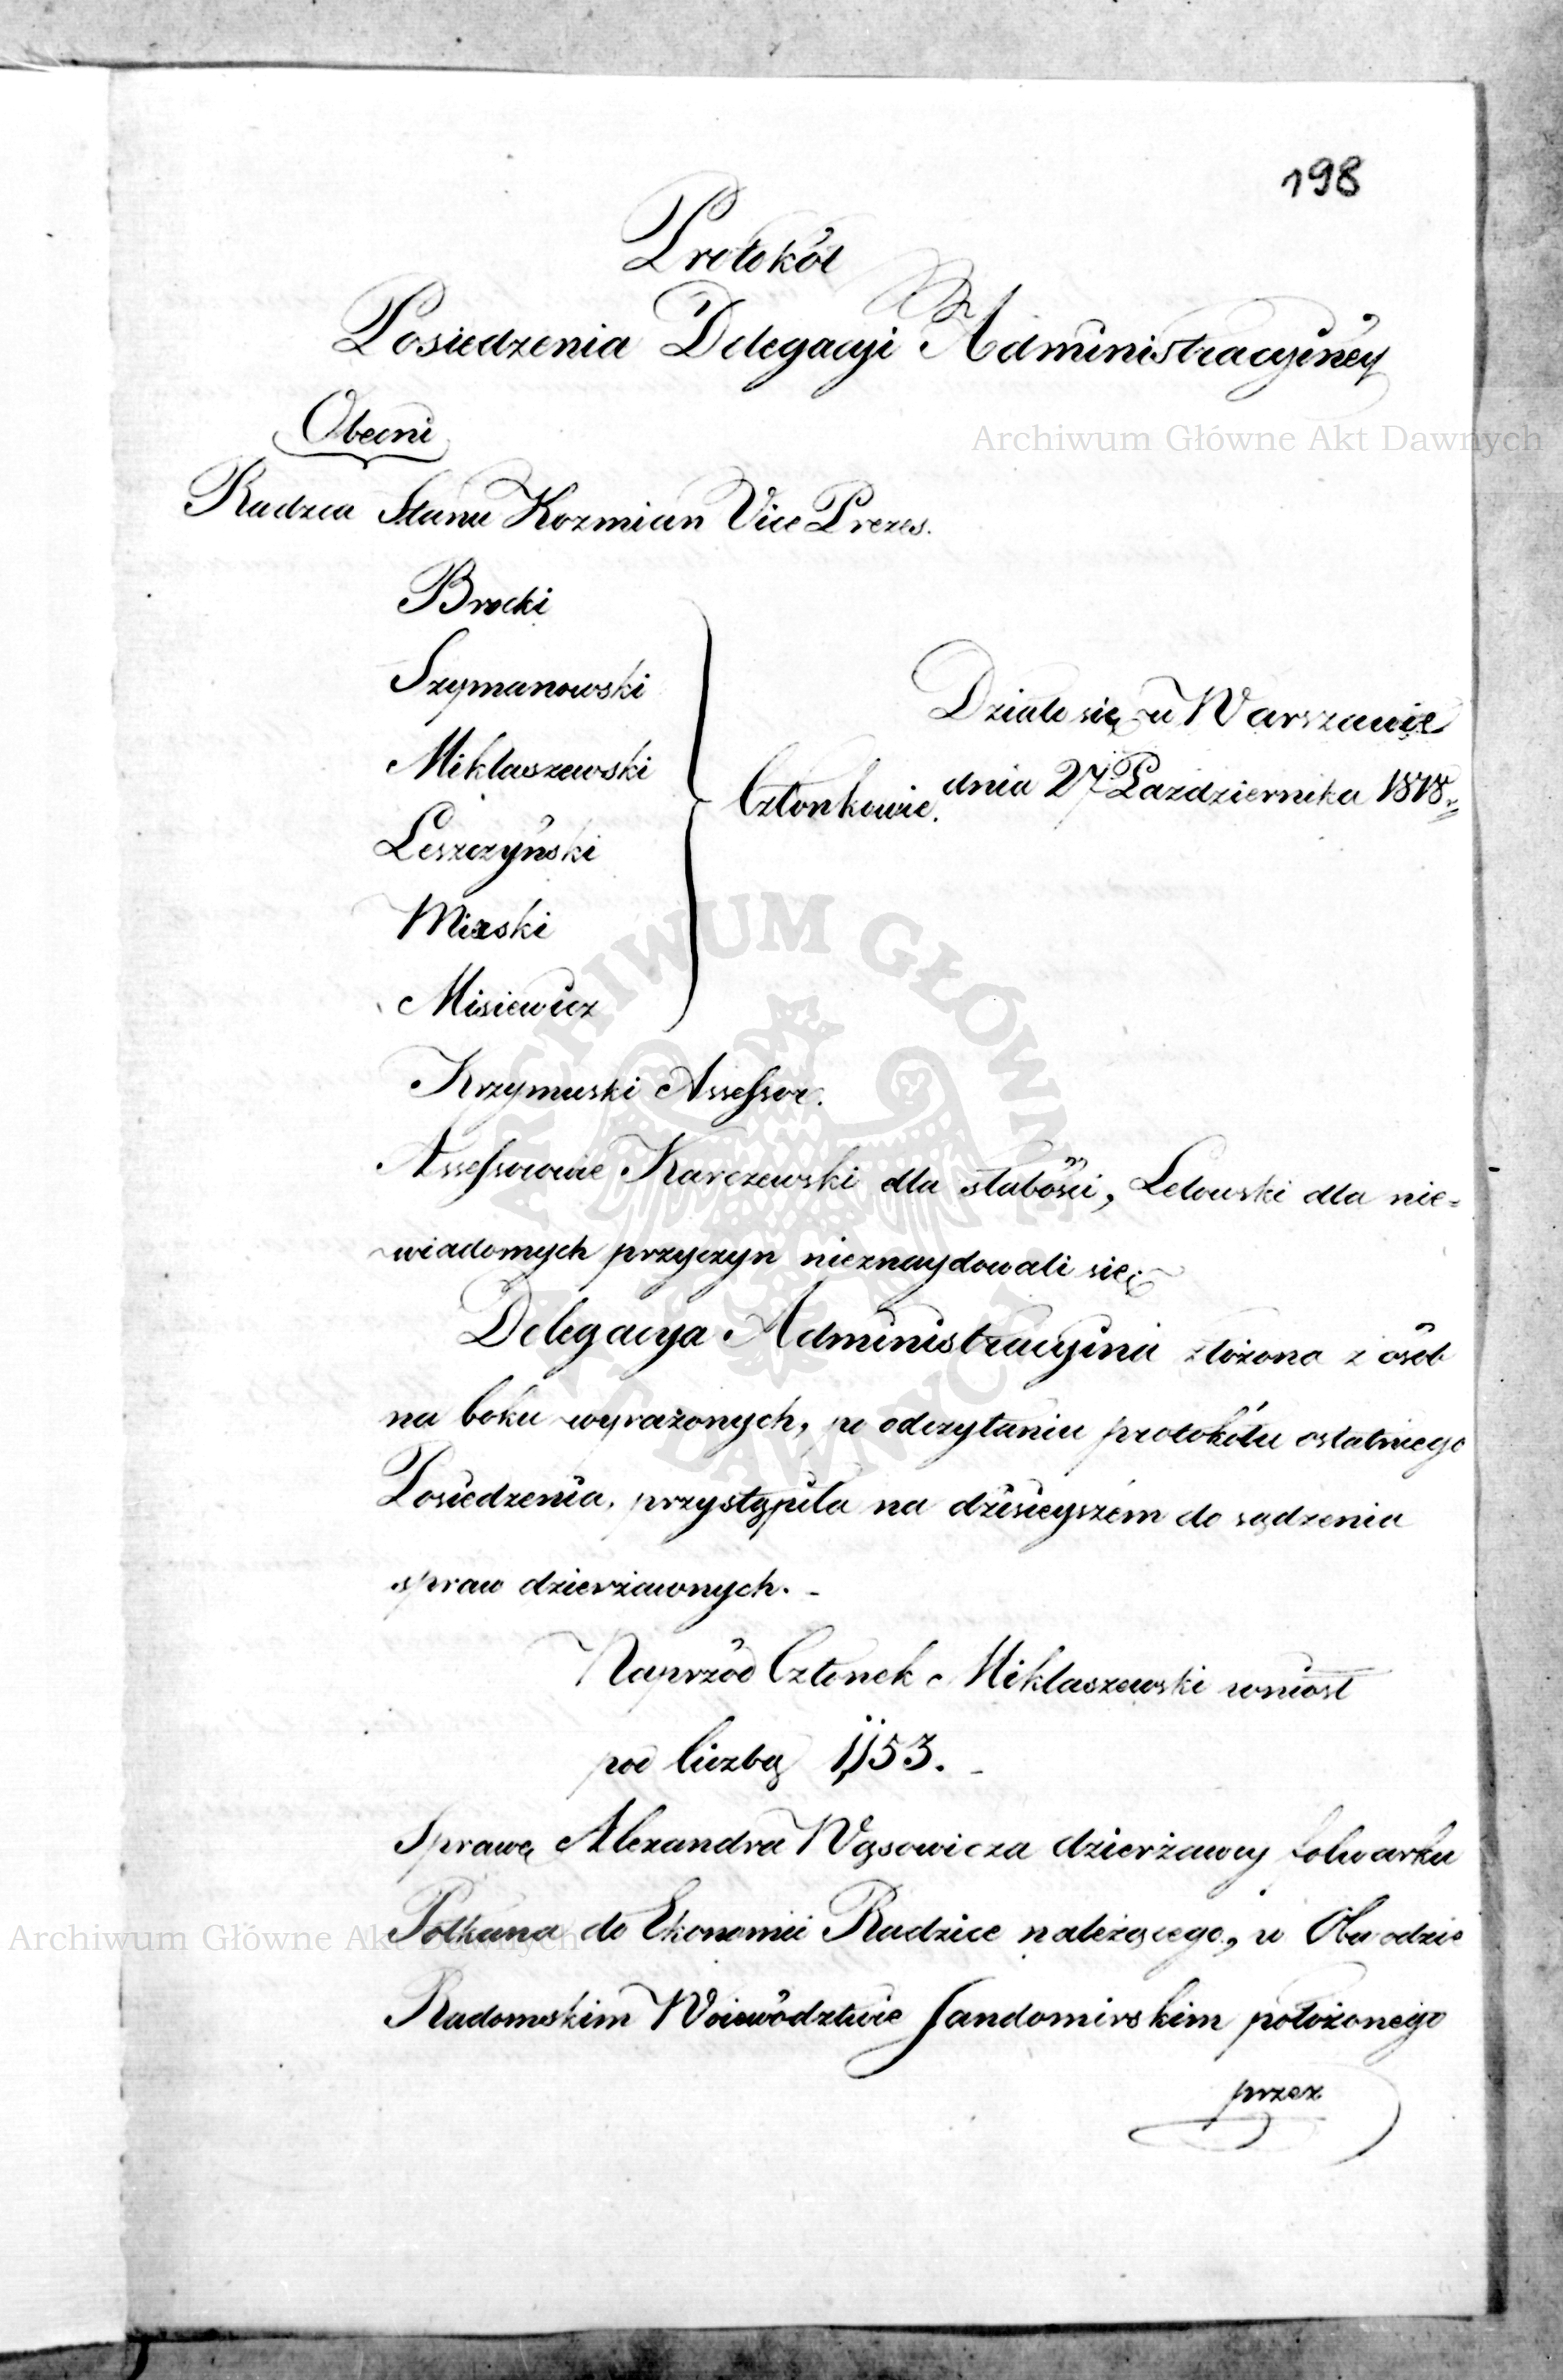 198
Protokół
Posiedzenia Delegacyi Administracyiney
Obecni
Radzca Stanu Kozmian Vice Prezes.
Brocki
Szymanowski
Miklaszewski
Leszczyński
Mirski
Misiewicz
Członkowie.
Działo się w Warszawie
dnia 27 Pazdziernika 1818 r.
Krzymuski Assessor.
Assessorowie Karczewski dla słabości, Lelowski dla nie=
wiadomych przyczyn nieznaydowali się
Delegacya Administracyina złożona z osób
na boku wyrażonych, po odczytaniu protokółu ostatniego
Posiedzenia, przystąpiła na dzisieyszém do sądzenia
spraw dzierżawnych. -
Naprzód Członek Miklaszewski wniosł
pod liczbą 1,153. -
Sprawę Alexandra Wąsowicza dzierżawcy folwarku
Potkana do Ekonomii Radzice należącego, w Obwodzie
Radomskim Woiewództwie Sandomirskim położonego
przez
Archiwum Główne Akt Dawnych
ARCHIWUM GŁÓWNE AKT DAWNYCH
Archiwum Główne Akt Dawnych